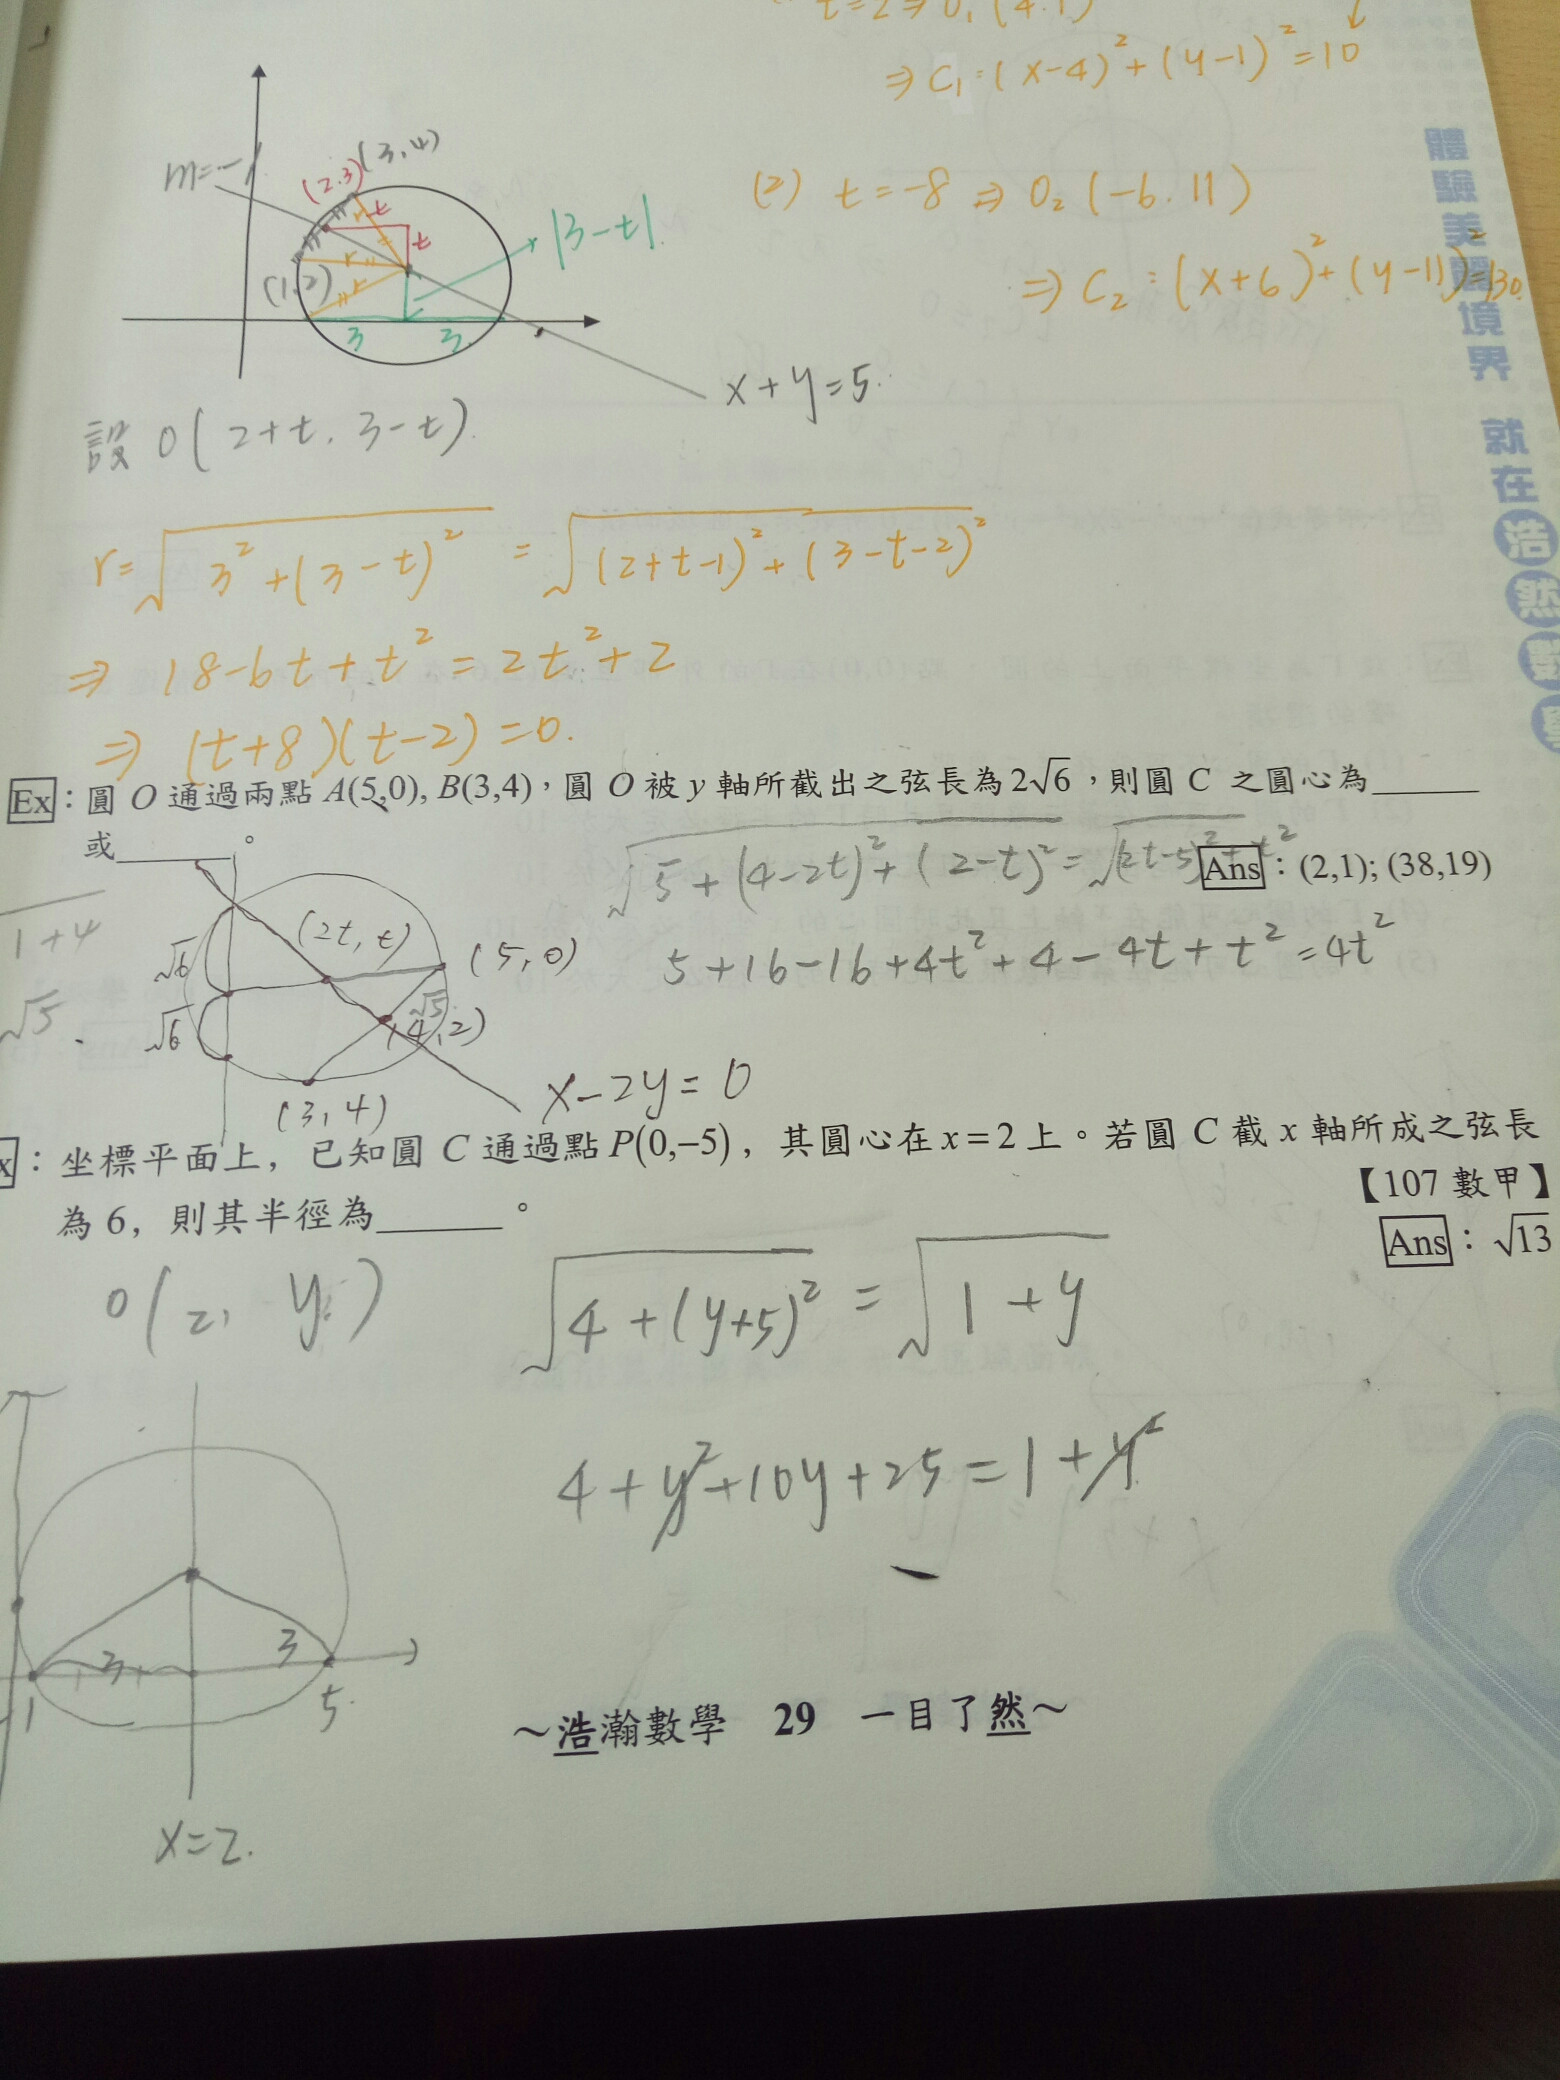 t=2⇒O₁(4.1)
⇒C₁:(x-4)²+(y-1)²=10
m=-1
(2.3)
(3,4)
t
t
r
|3-t|
(1,2)
r
r
3
3
x+y=5
(2) t=-8⇒O₂(-6.11)
⇒C₂:(x+6)²+(y-11)²=130
體驗美麗境界 就在浩然數學
設 O(2+t, 3-t)
r=√(3²+(3-t)²) = √((2+t-1)²+(3-t-2)²)
⇒ 18-6t+t²=2t²+2
⇒ (t+8)(t-2)=0.
Ex:圓 O 通過兩點 A(5,0), B(3,4),圓 O 被 y 軸所截出之弦長為2√6,則圓 C 之圓心為______
或______。
√(5+(4-2t)²+(2-t)²)=√((2t-5)²+t²)
Ans:(2,1); (38,19)
1+4
√5
√6
√6
(2t, t)
(5,0)
√5
(4,2)
(3,4)
5+16-16+4t²+4-4t+t²=4t²
x-2y=0
x:坐標平面上,已知圓 C 通過點 P(0,−5),其圓心在 x=2 上。若圓 C 截 x 軸所成之弦長
為 6,則其半徑為______。
【107 數甲】
Ans:√13
O(2, y)
√(4+(y+5)²) = √(1+y
4+y²+10y+25=1+y²
3
3
-1
5
x=2.
～浩瀚數學 29 一目了然～